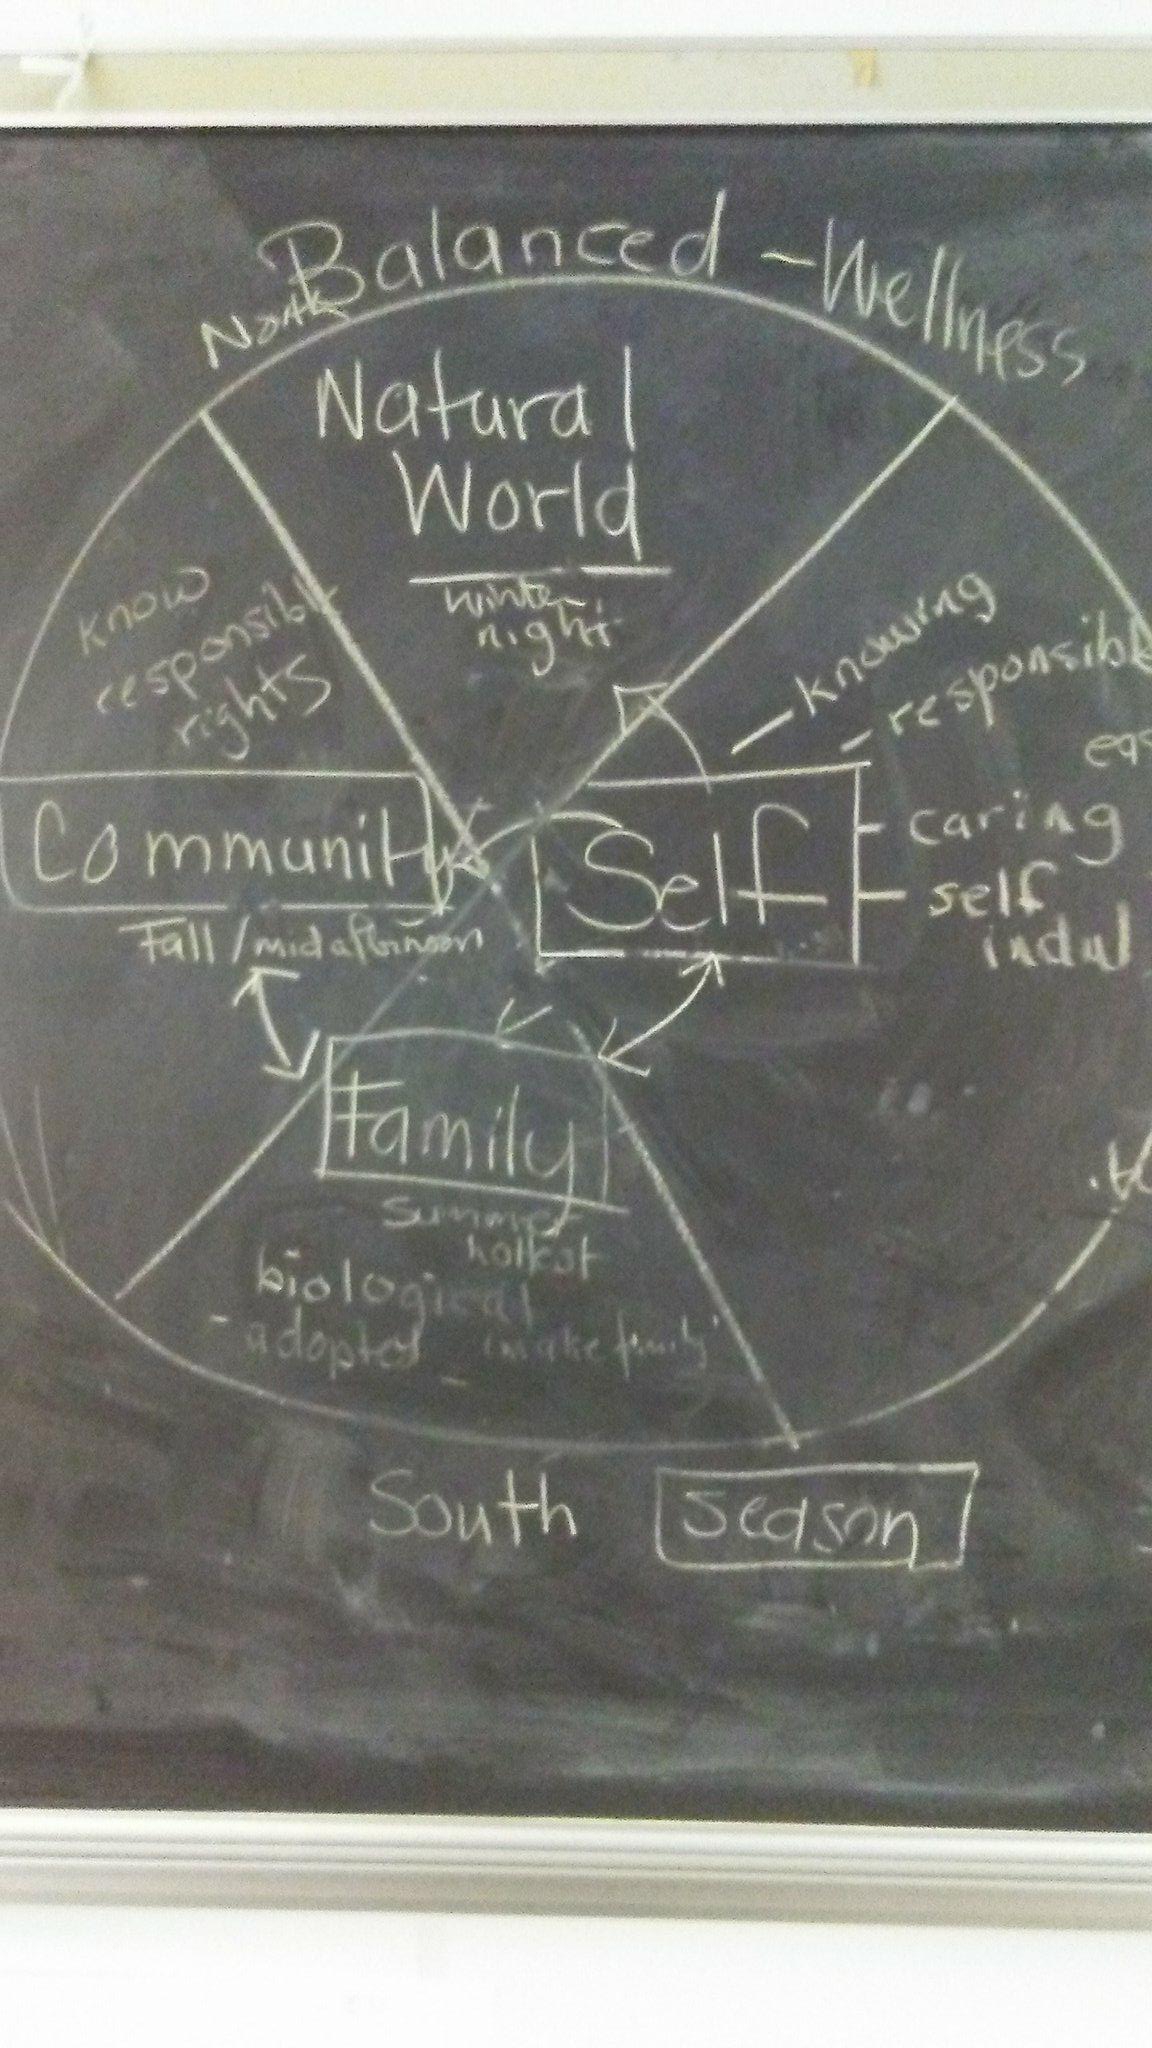 Balanced - Wellness
North
Natural
World
winter
night
know
responsible
rights
- knowing
- responsible
eas
- caring
- self
indul
Community
Self
Fall / mid afternoon
Family
summer
hottest
biological
- adopted "make family"
South
season